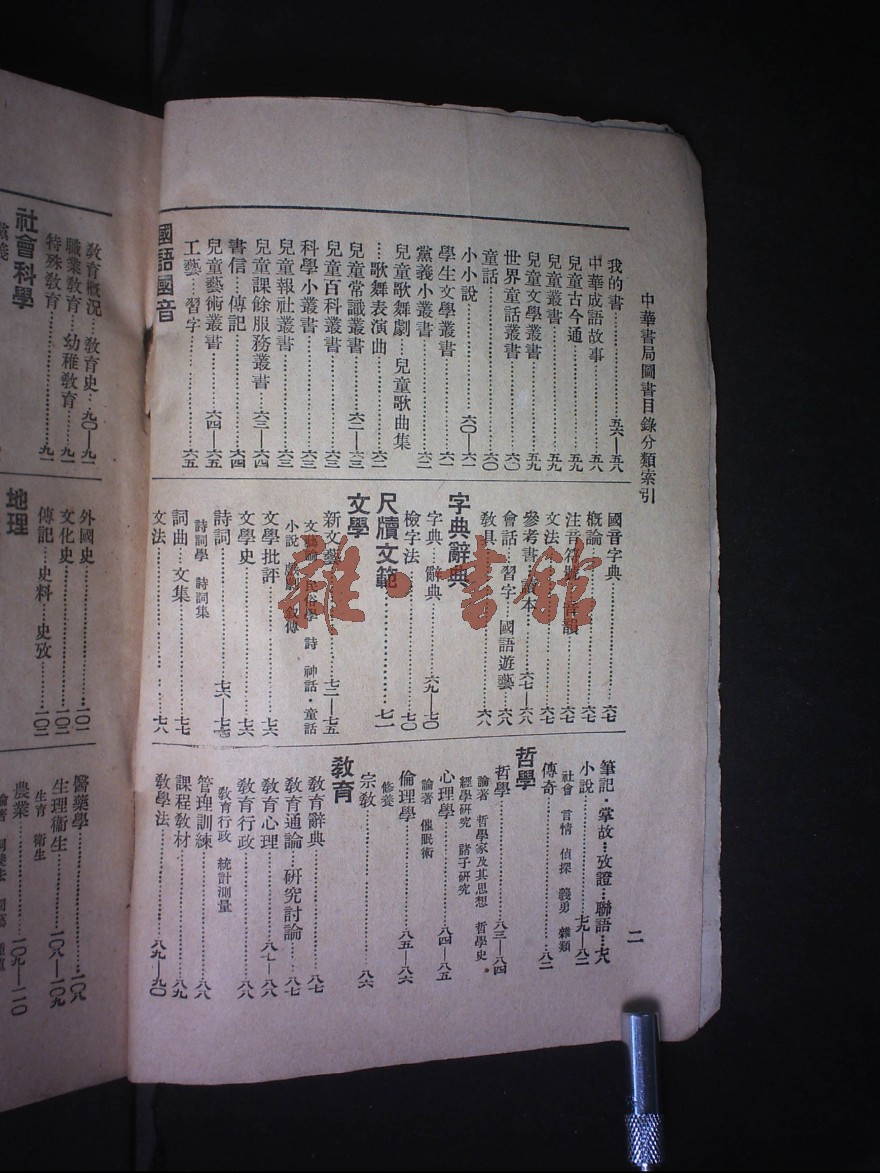 中華書局圖書目錄分類索引
二
我的書…五六—五八
中華成語故事…五八
兒童古今通…五九
兒童叢書…五九
兒童文學叢書…五九
世界童話叢書…六〇
童話…六〇
小小說…六〇—六一
學生文學叢書…六一
黨義小叢書…六二
兒童歌舞劇…兒童歌曲集
…歌舞表演曲…六二
兒童常識叢書…六二—六三
兒童百科叢書…六三
科學小叢書…六三
兒童報社叢書…六三
兒童課餘服務叢書…六三—六四
書信…傳記…六四
兒童藝術叢書…六四—六五
工藝…習字…六五
國語國音
國音字典…六七
概論…六七
注音符號…音韻…六七
文法…六七
參考書…讀本…六七—六八
會話…習字…國語遊藝…六八
教具…六八
字典辭典
字典…辭典…六九—七〇
檢字法…七〇
尺牘文範…七一
文學
新文藝…七二—七五
文藝論 民俗學 詩 神話・童話
小說 戲劇 敘傳
文學批評…七六
文學史…七六
詩詞…七六—七七
詩詞學 詩詞集
詞曲…文集…七七
文法…七八
筆記・掌故…攷證…聯語…七八
小說…七九—八二
社會 言情 偵探 義勇 雜類
傳奇…八二
哲學
哲學…八三—八四
論著 哲學家及其思想 哲學史
經學研究 諸子研究
心理學…八四—八五
論著 催眠術
倫理學…八五—八六
修養
宗教…八六
教育
教育辭典…八七
教育通論…研究討論…八七
教育心理…八七—八八
教育行政…八八
教育行政 統計測量
管理訓練…八八
課程教材…八九
教學法…八九—九〇
教育概況…教育史…九〇—九一
職業教育…幼稚教育…九一
特殊教育…九一
社會科學
黨義
外國史…一〇一
文化史…一〇二
傳記…史料…史攷…一〇二
地理
醫藥學…一〇八
生理衞生…一〇八—一〇九
生育 衞生
農業…一〇九—一一〇